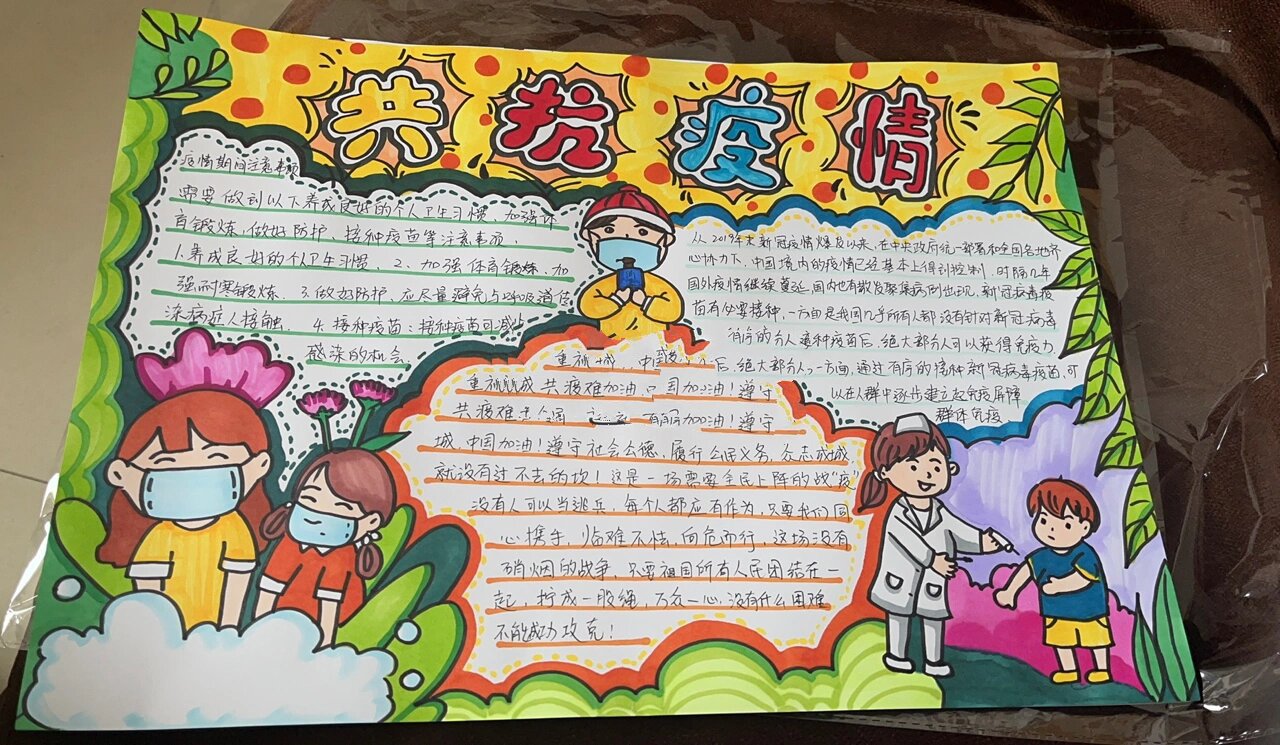 共抗疫情
疫情期间注意事项
需要做到以下养成良好的个人卫生习惯、加强体
育锻炼、做好防护、接种疫苗等注意事项.
1.养成良好的个人卫生习惯、2、加强体育锻炼、加
强耐寒锻炼. 3.做好防护、应尽量避免与呼吸道传
染病症人接触、 4.接种疫苗：接种疫苗可减少
感染的机会.
从2019年末新冠疫情爆发以来、在中央政府统一部署和全国各地齐
心协力下、中国境内的疫情已经基本上得到控制、时隔几年
国外疫情继续蔓延、国内也有散发聚集病例出现、新冠病毒疫
苗有必要接种、一方面是我国几乎所有人都没有针对新冠病毒
的 人接种疫苗后、绝大部分人可以获得免疫力.
后、绝大部分人 一方面、通过有序的接种新冠病毒疫苗、可
以在人群中逐步建立起免疫屏障
群体免疫
重 城 中国
重 成 共疫难加油 国加油！遵守
共疫难 加油！遵守
城、中国加油！遵守社会公德、履行公民义务、众志成城、
就没有过不去的坎！这是一场需要全民上阵的战"疫"
没有人可以当逃兵、每个人都应有作为、只要我们同
心携手、临难不怯、向危而行、这场没有
硝烟的战争、只要祖国所有人民团结在一
起、拧成一股绳、万众一心、没有什么困难
不能成功攻克！